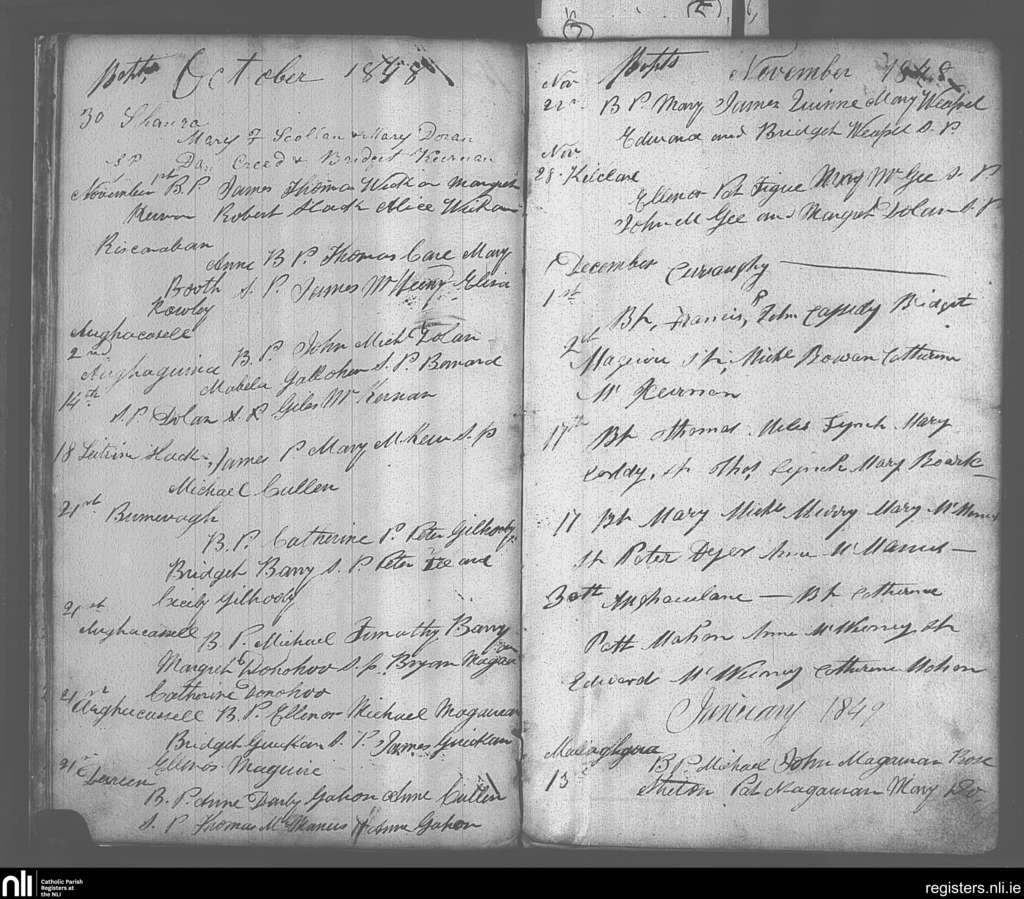 Bapts October 1848
30 Shanra
Mary of Scollan & Mary Doran
S.P. Dan Creed & Bridget Keernan
November 1st B.P. James Thomas Wickam Margret
Keervan Robert Slack Alice Wickam
Riscaraban
Anne B P. Thomas Care Mary
Booth S. P. James McWeeny Eliza
Rowley
Aughacasell
2nd
Aughaguina B.P. John Michl Dolan
Mabela Gallohen S.P. Bernard
14th
S.P. Dolan S.P. Giles Mc Kernan
18 Leitrim Slack James P Mary McKeu S.p
Michael Cullen
21st Bumewagh
B.P. Catherine P. Peter Gilhooly
Bridget Barry S. P Peter Fee and
Cecily Gilhooly
21st
Aughacassell B. P. Michael Timothy Barry
Margret Donohoo S.p. Bryan Magauran
Catherine Donohoo
21st
Aughucassell B. P. Ellenor Michael Magauran
Bridget Guickan S. P. James Guickan
Ellenor Maguire
21st Derreen
B. P. Anne Darby Gahon Anne Cullen
S. P Thomas McManus & Anne Gahon
Bapts November 1848
Nov
22 B P. Mary James Quinne Mary Weapel
Edward and Bridget Weapel S. P.
Nov
28 Kilclare
Ellenor Pat Figue Mary McGee S. P
John McGee and Margret Dolan S. P
December Curraughy
1st
Bt, Francis, P John Cassidy Bridget
2d
Maguire St, Michl Bowan Catherine
Mc Keernan
17th Bt Thomas Miles Lynch Mary
Leddy, St Thos Lynch Mary Boark
17 Bt Mary Michl Murry Mary McManus
St Peter Dyer Anne McManus
30th Aughaculane — Bt Catherine
Patt Mahon Anne McWeeney St
Edward McWeeney Catherine Mahon
January 1849
Mullaghgara
13 B. P. Michael John Magauran Rose
Shelton Pat Magauran Mary Do
nli Catholic Parish
Registers at
the NLI
registers.nli.ie